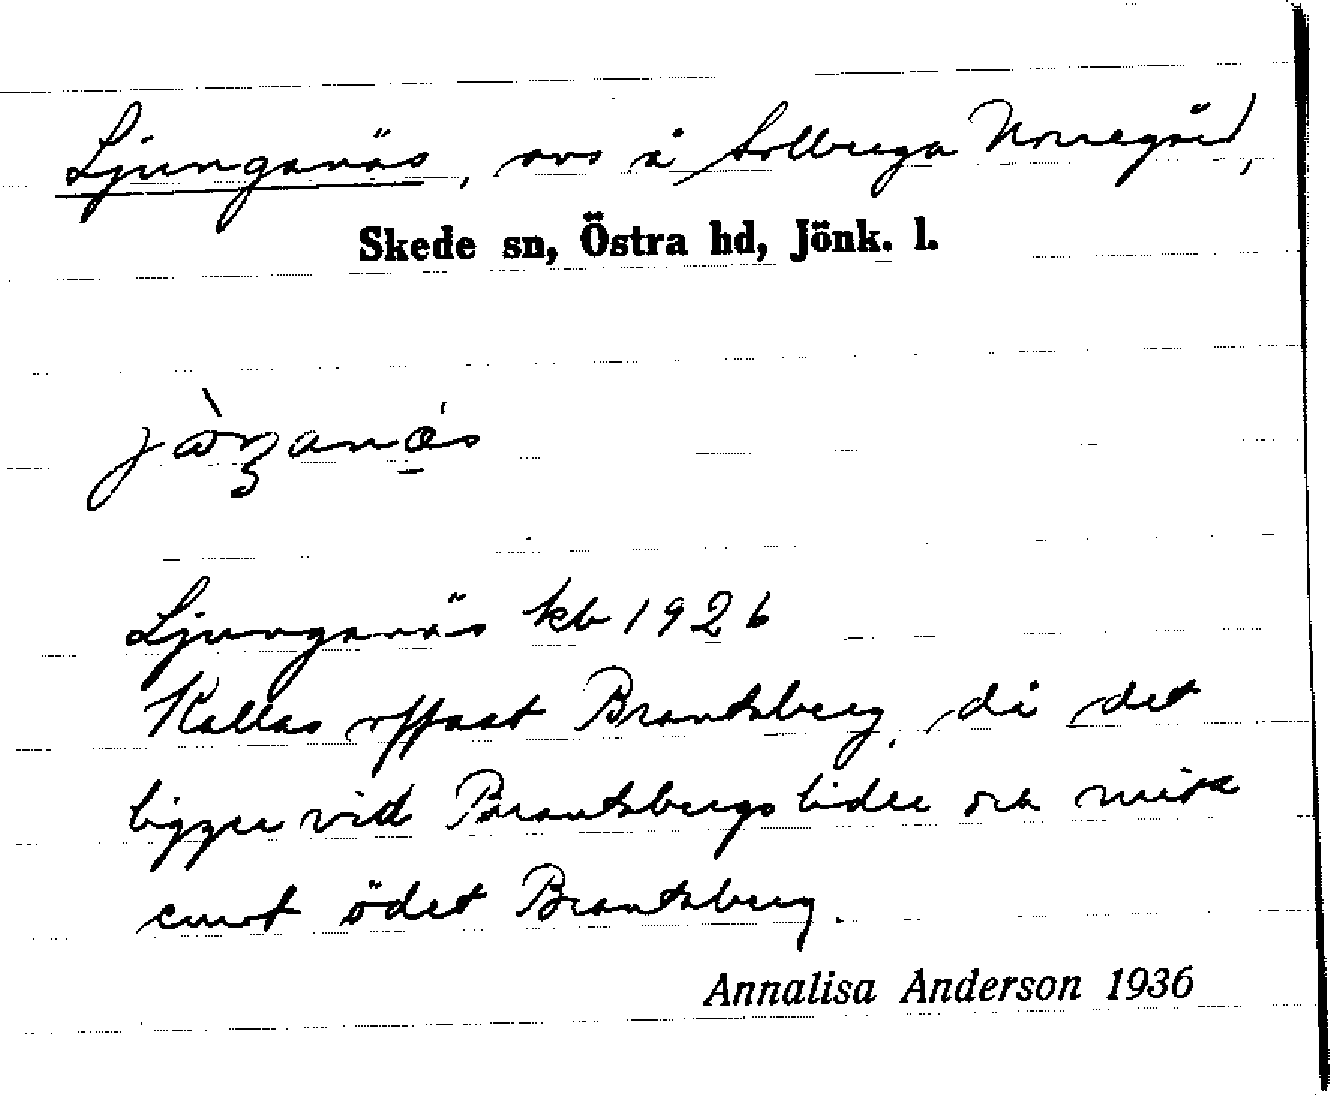 Ljunganäs, avs å Solberga Norregård,
Skede sn, Östra hd, Jönk. l.
Ljunganäs kb 1926
Kallas oftast Brantsberg, då det
ligger vid Brantsbergs lider och mitt
emot ödet Brantsberg.
Annalisa Anderson 1936